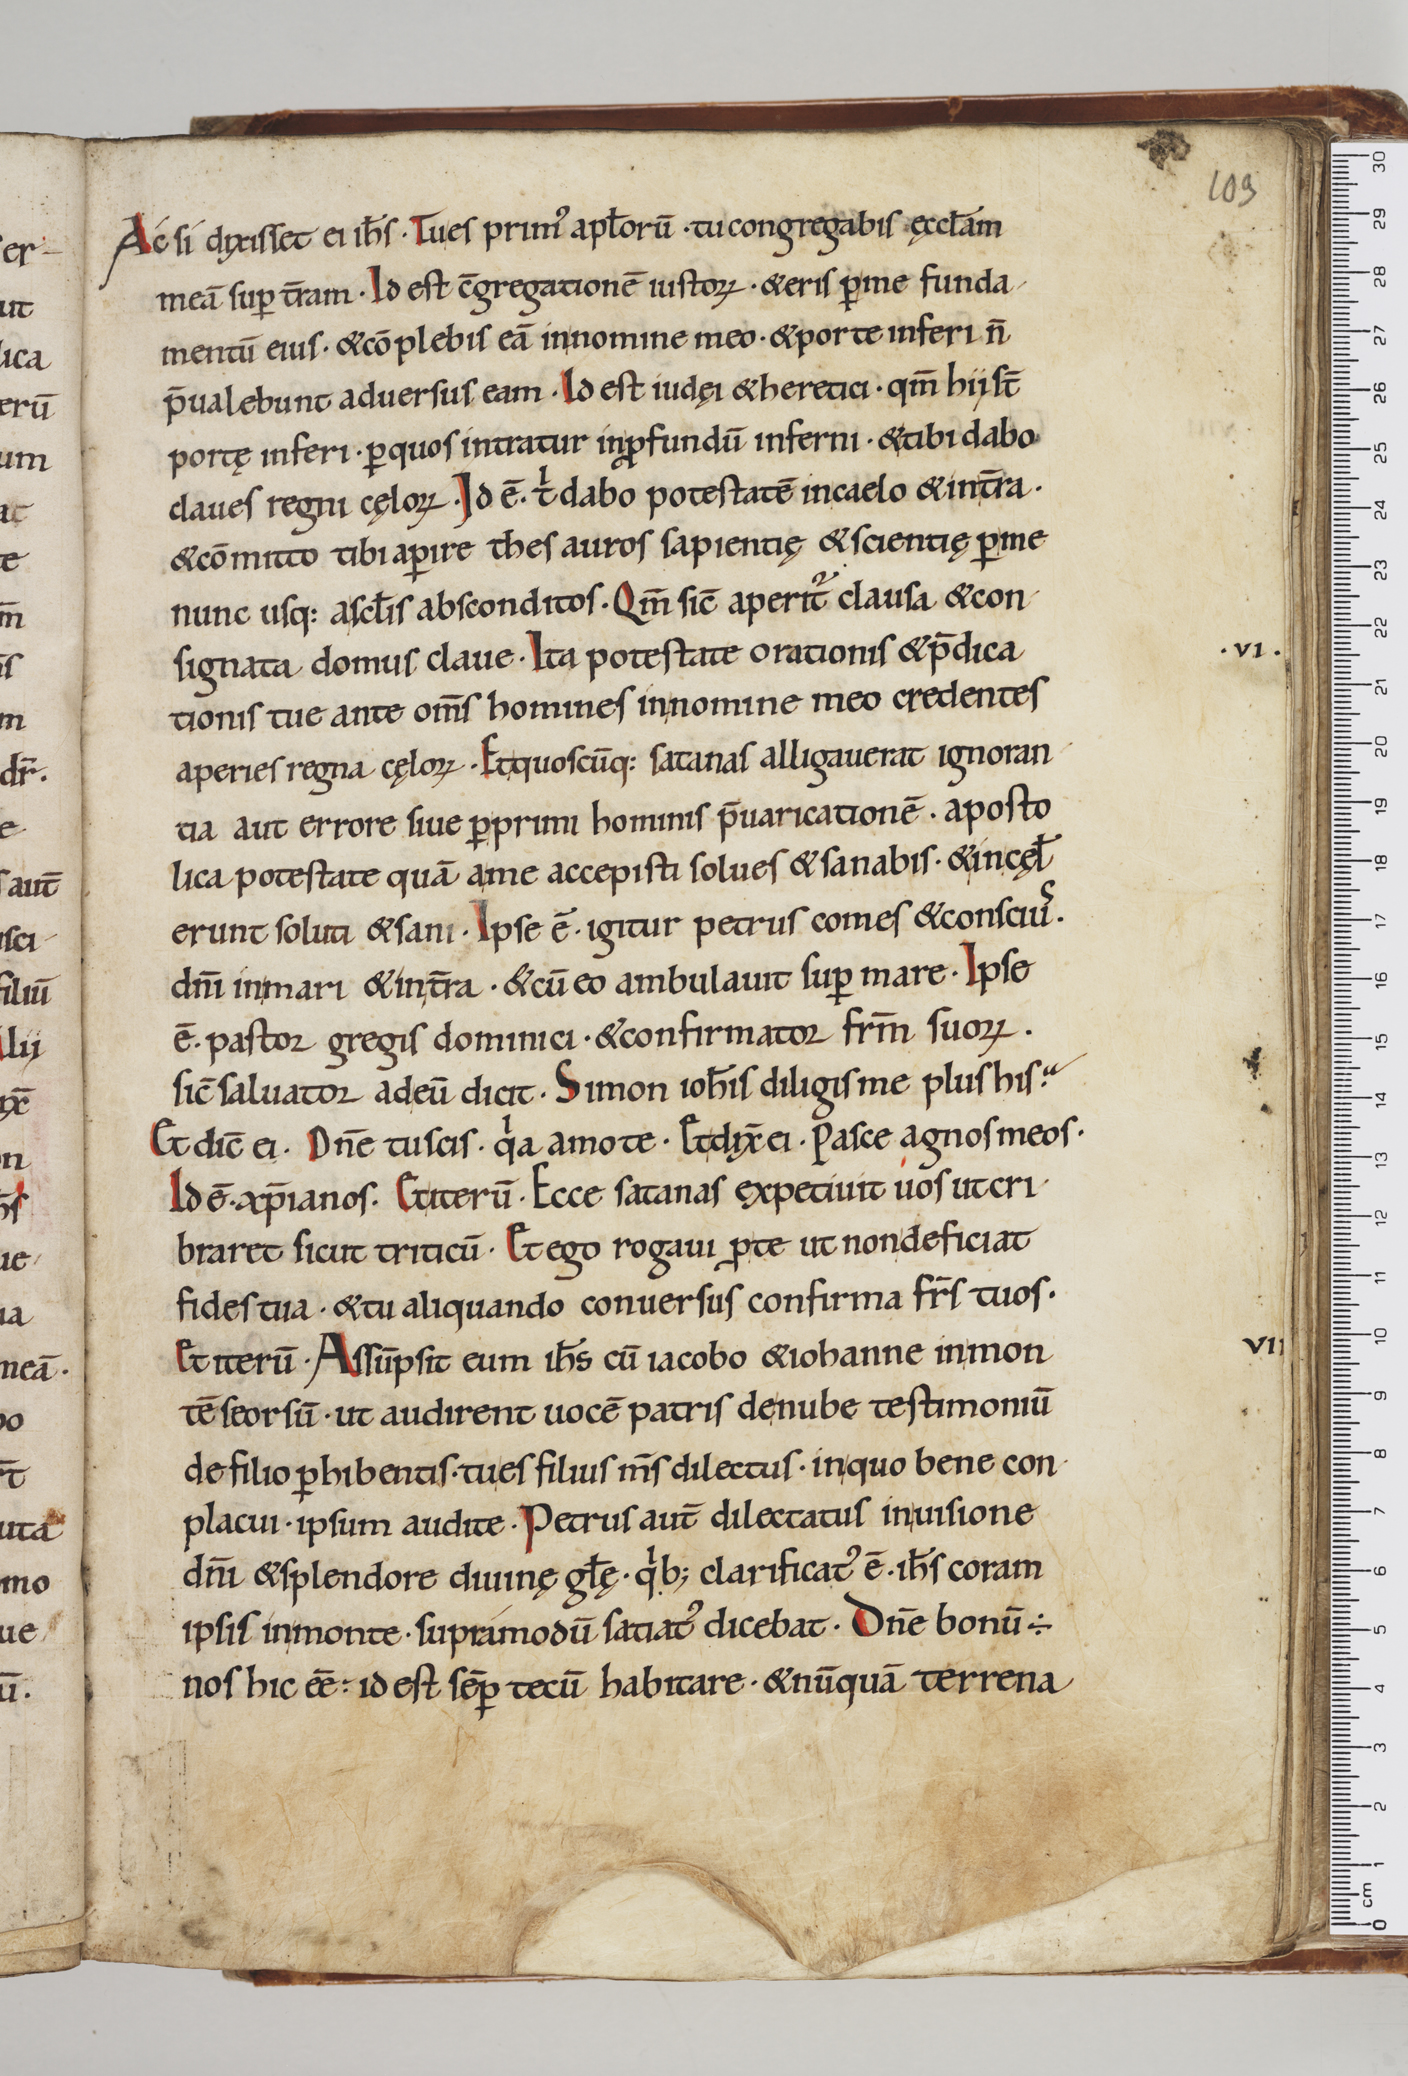 109
Ac̄ si dyxisset ei ih̄s · Tu es prim᾿ apl̄orū · tu congregabis ęccl̄am
meā sup t̄ram · Id est c̄gregationē iustoꝝ · & eris ꝑ me funda-
mentū eius · & cōplebis eā in nomine meo · & porte inferi n̄
p̄ualebunt aduersus eam · Id est iudęi & heretici · qm̄ hij st̄
portę inferi · ꝑ quos intratur in ꝓfundū inferni · & tibi dabo
claues regni cęloꝝ · Id ē · t̄ dabo potestatē in caelo & in t̄ra ·
& cōmitto tibi aꝑire thesauros sapientię & scientię ꝑ me
nunc usq: a scl̄is absconditos · Qm̄ sic̄ aperit᷑ clausa & con-
signata domus claue · Ita potestate orationis & p̄dica
· VI ·
tionis tue ante om̄s homines in nomine meo credentes
aperies regna cęloꝝ · Et quoscūq: satanas alligauerat ignoran-
tia aut errore siue ꝑ primi hominis p̄uaricationē · aposto
lica potestate quā a me accepisti solues & sanabis · & in cęł
erunt soluti & sani · Ipse ē · igitur petrus comes & consciuˢ ·
dn̄i in mari & in t̄ra · & cū eo ambulauit suꝑ mare · Ipse
ē · pastor gregis dominici · & confirmator frm̄ suoꝝ ·
sic̄ saluator ad eū dicit · Simon ioh̄is diligis me plus his ·
Et dic̄ ei · Dn̄e tu scis · qͥa amo te · Et dyx̄ ei · Pasce agnos meos ·
Id ē · xp̄ianos · Et iterū · Ecce satanas expetiuit uos ut cri-
braret sicut triticū · Et ego rogaui ꝓ te ut non deficiat
fides tua · & tu aliquando conuersus confirma fr̄s tuos ·
Et iterū · Assūpsit eum ih̄s cū iacobo & iohanne in mon
VII
tē seorsū · ut audirent uocē patris de nube testimoniū
de filio ꝑhibentis · tu es filius m̄s dilectus · in quo bene con-
placui · ipsum audite · Petrus aut̄ dilectatus in uisione
dn̄i & splendore diuinę gl̄ę · qͥb; clarificat᾿ ē · ih̄s coram
ipsis in monte · supra modū satiat᾿ dicebat · Dn̄e bonū ÷
nos hic ēē : id est sēꝑ tecū habitare · & nūquā terrena